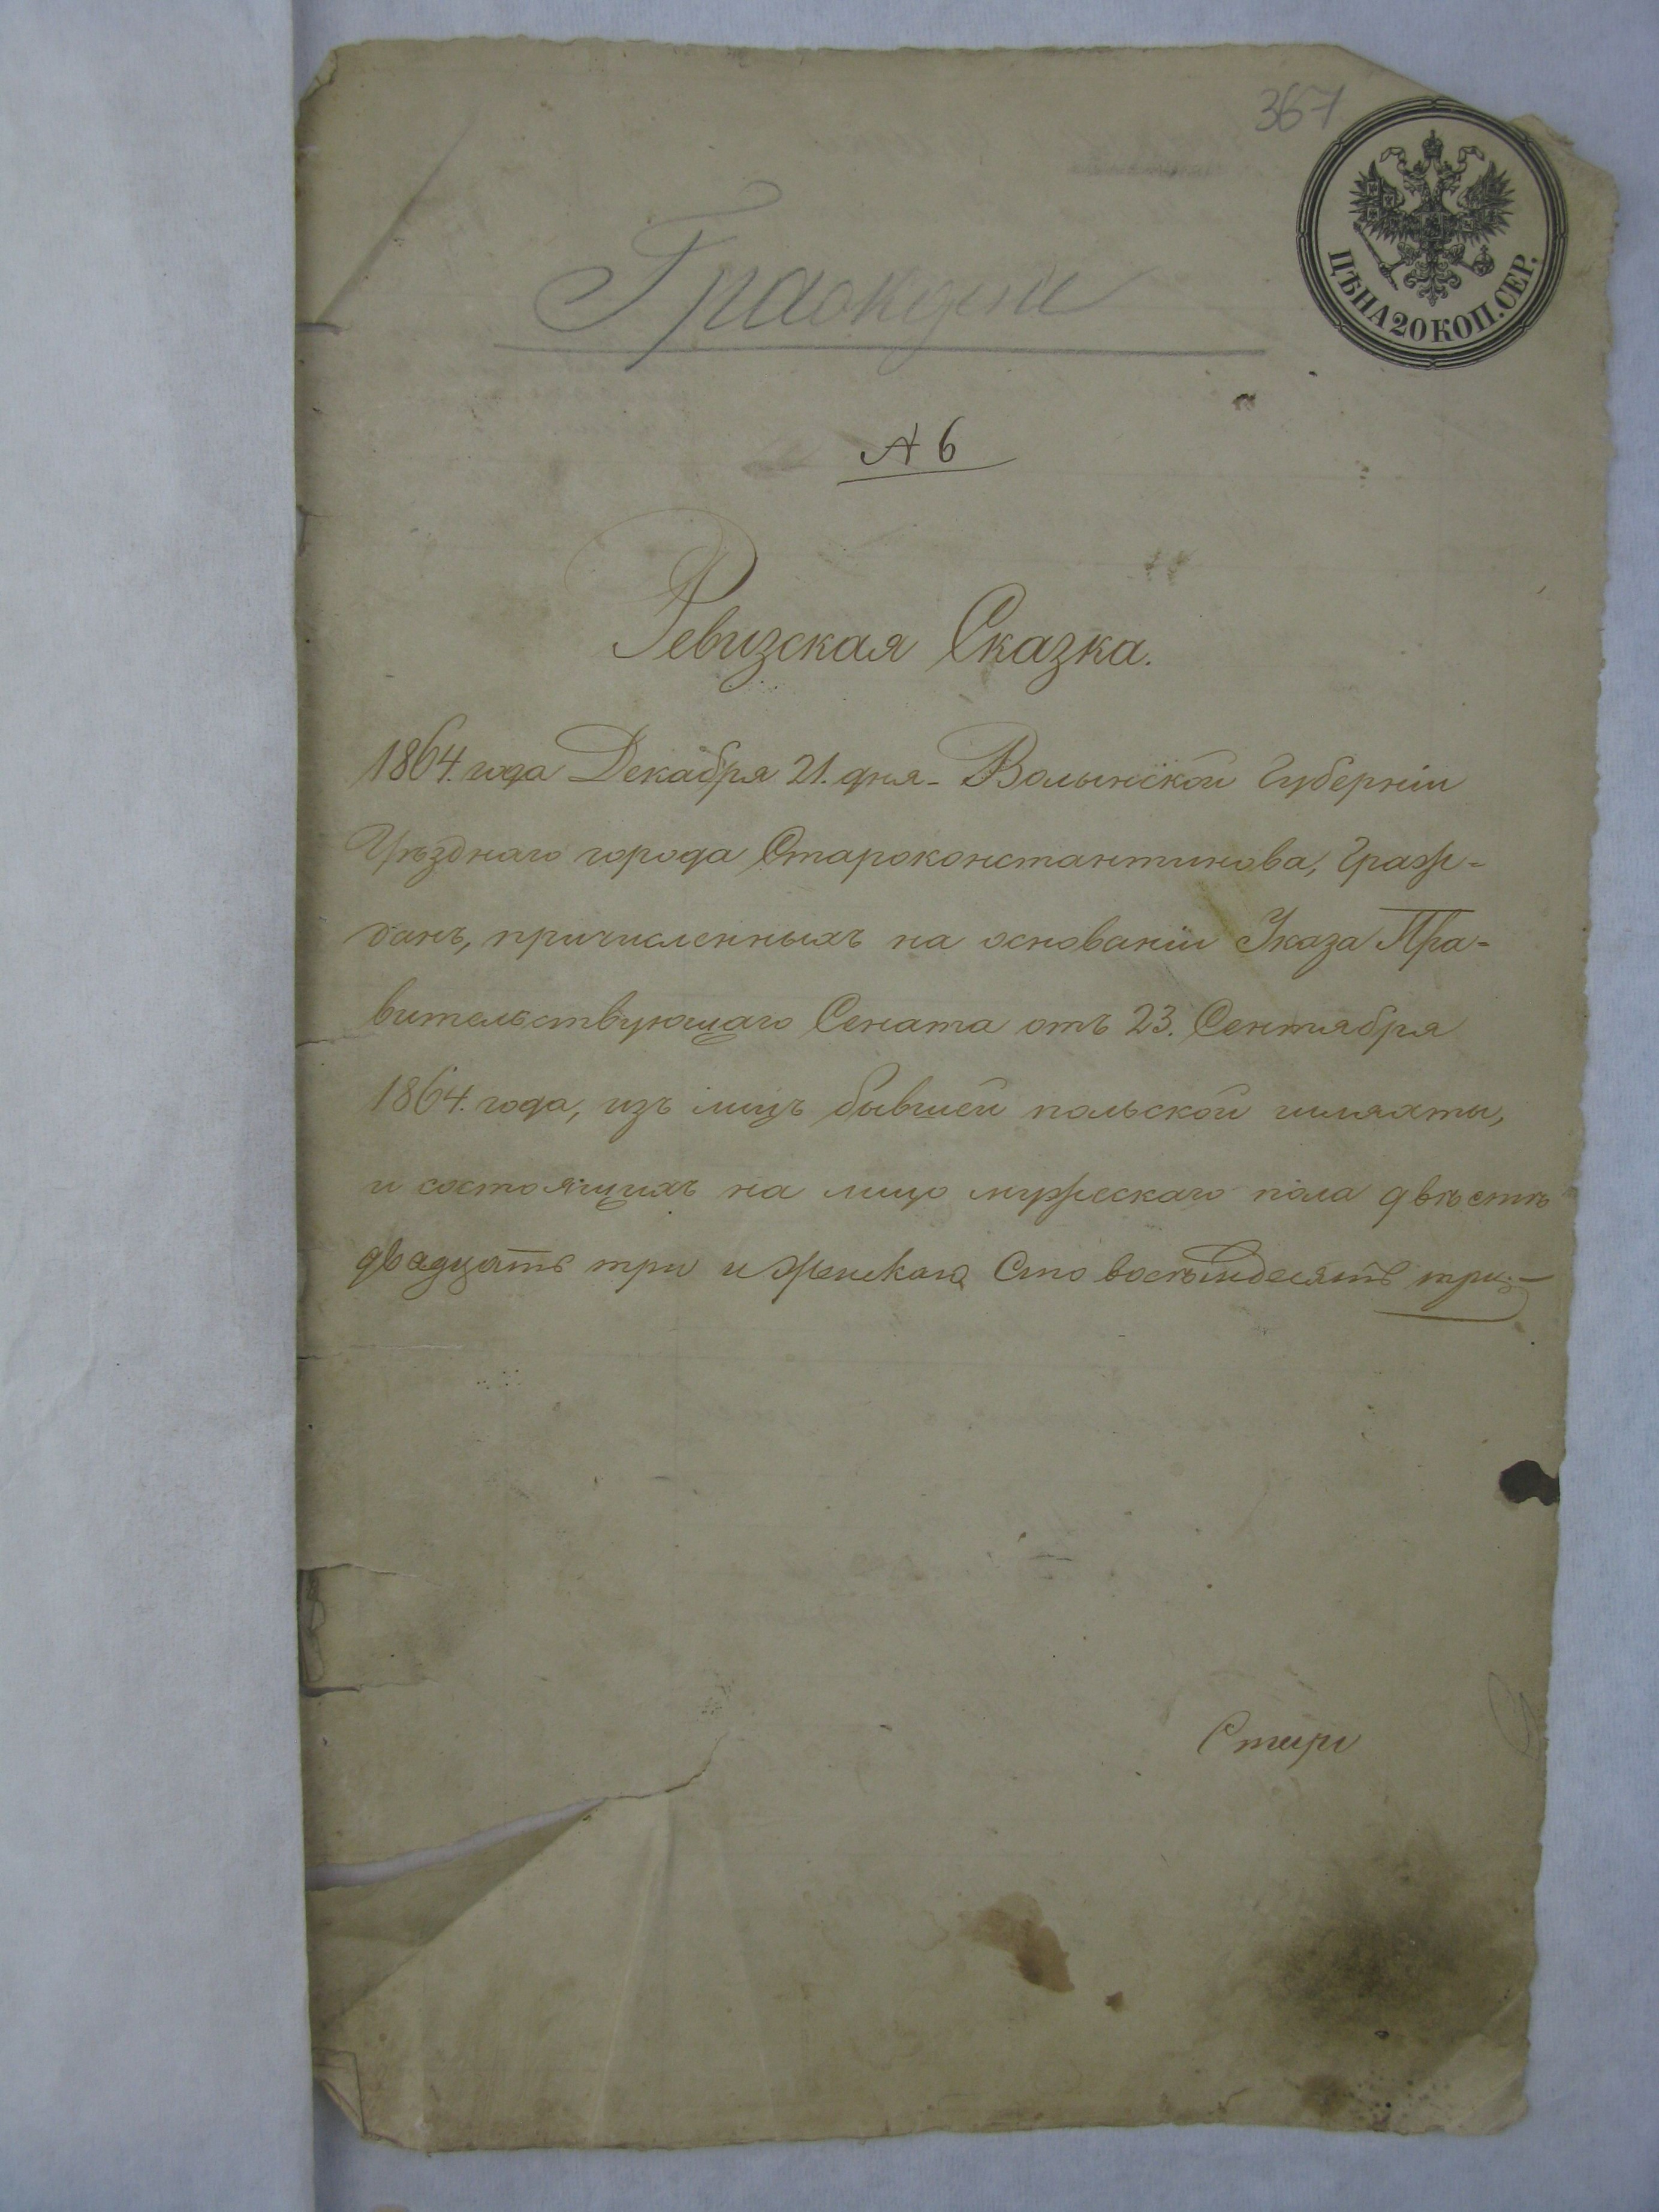 367
ЦѢНА 20 КОП. СЕР.
Граждане
№ 6
Ревизская Сказка.
1864. года Декабря 21. дня - Волынской Губерніи
Уѣзднаго города Староконстантинова, Граж-
данъ, причисленныхъ на основаніи Указа Пра-
вительствующаго Сената отъ 23. Сентября
1864. года, изъ лицъ бывшей польской шляхты,
и состоящихъ на лицо мужескаго пола двѣстѣ
двадцать три и женскаго Сто восемьдесятъ три. -